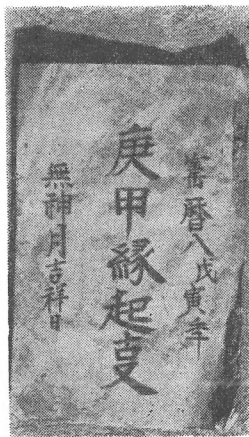 寳暦八戊寅年
庚申縁起叓
無神月吉祥日